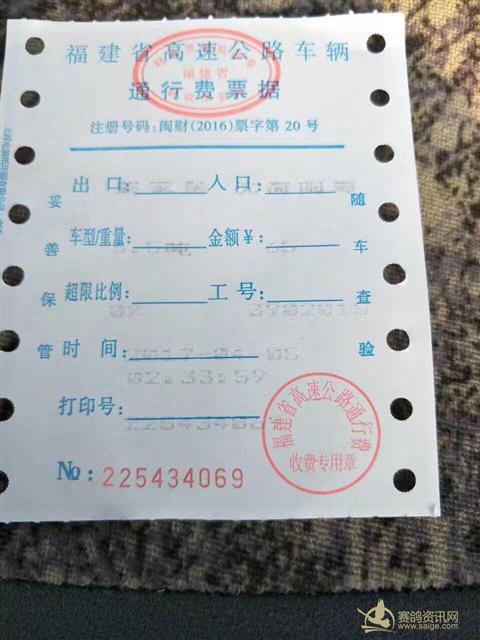 福建省高速公路车辆
福建省
通行费票据
注册号码:闽财(2016)票字第20号
出口: 入口:
车型/重量: 金额¥:
吨 65
超限比例: 工号:
0% 3902015
时间:
2017-04-05
02:33:59
打印号:
妥善保管
随车查验
福建省高速公路通行费
收费专用章
№:225434069
赛鸽资讯网
www.saige.com